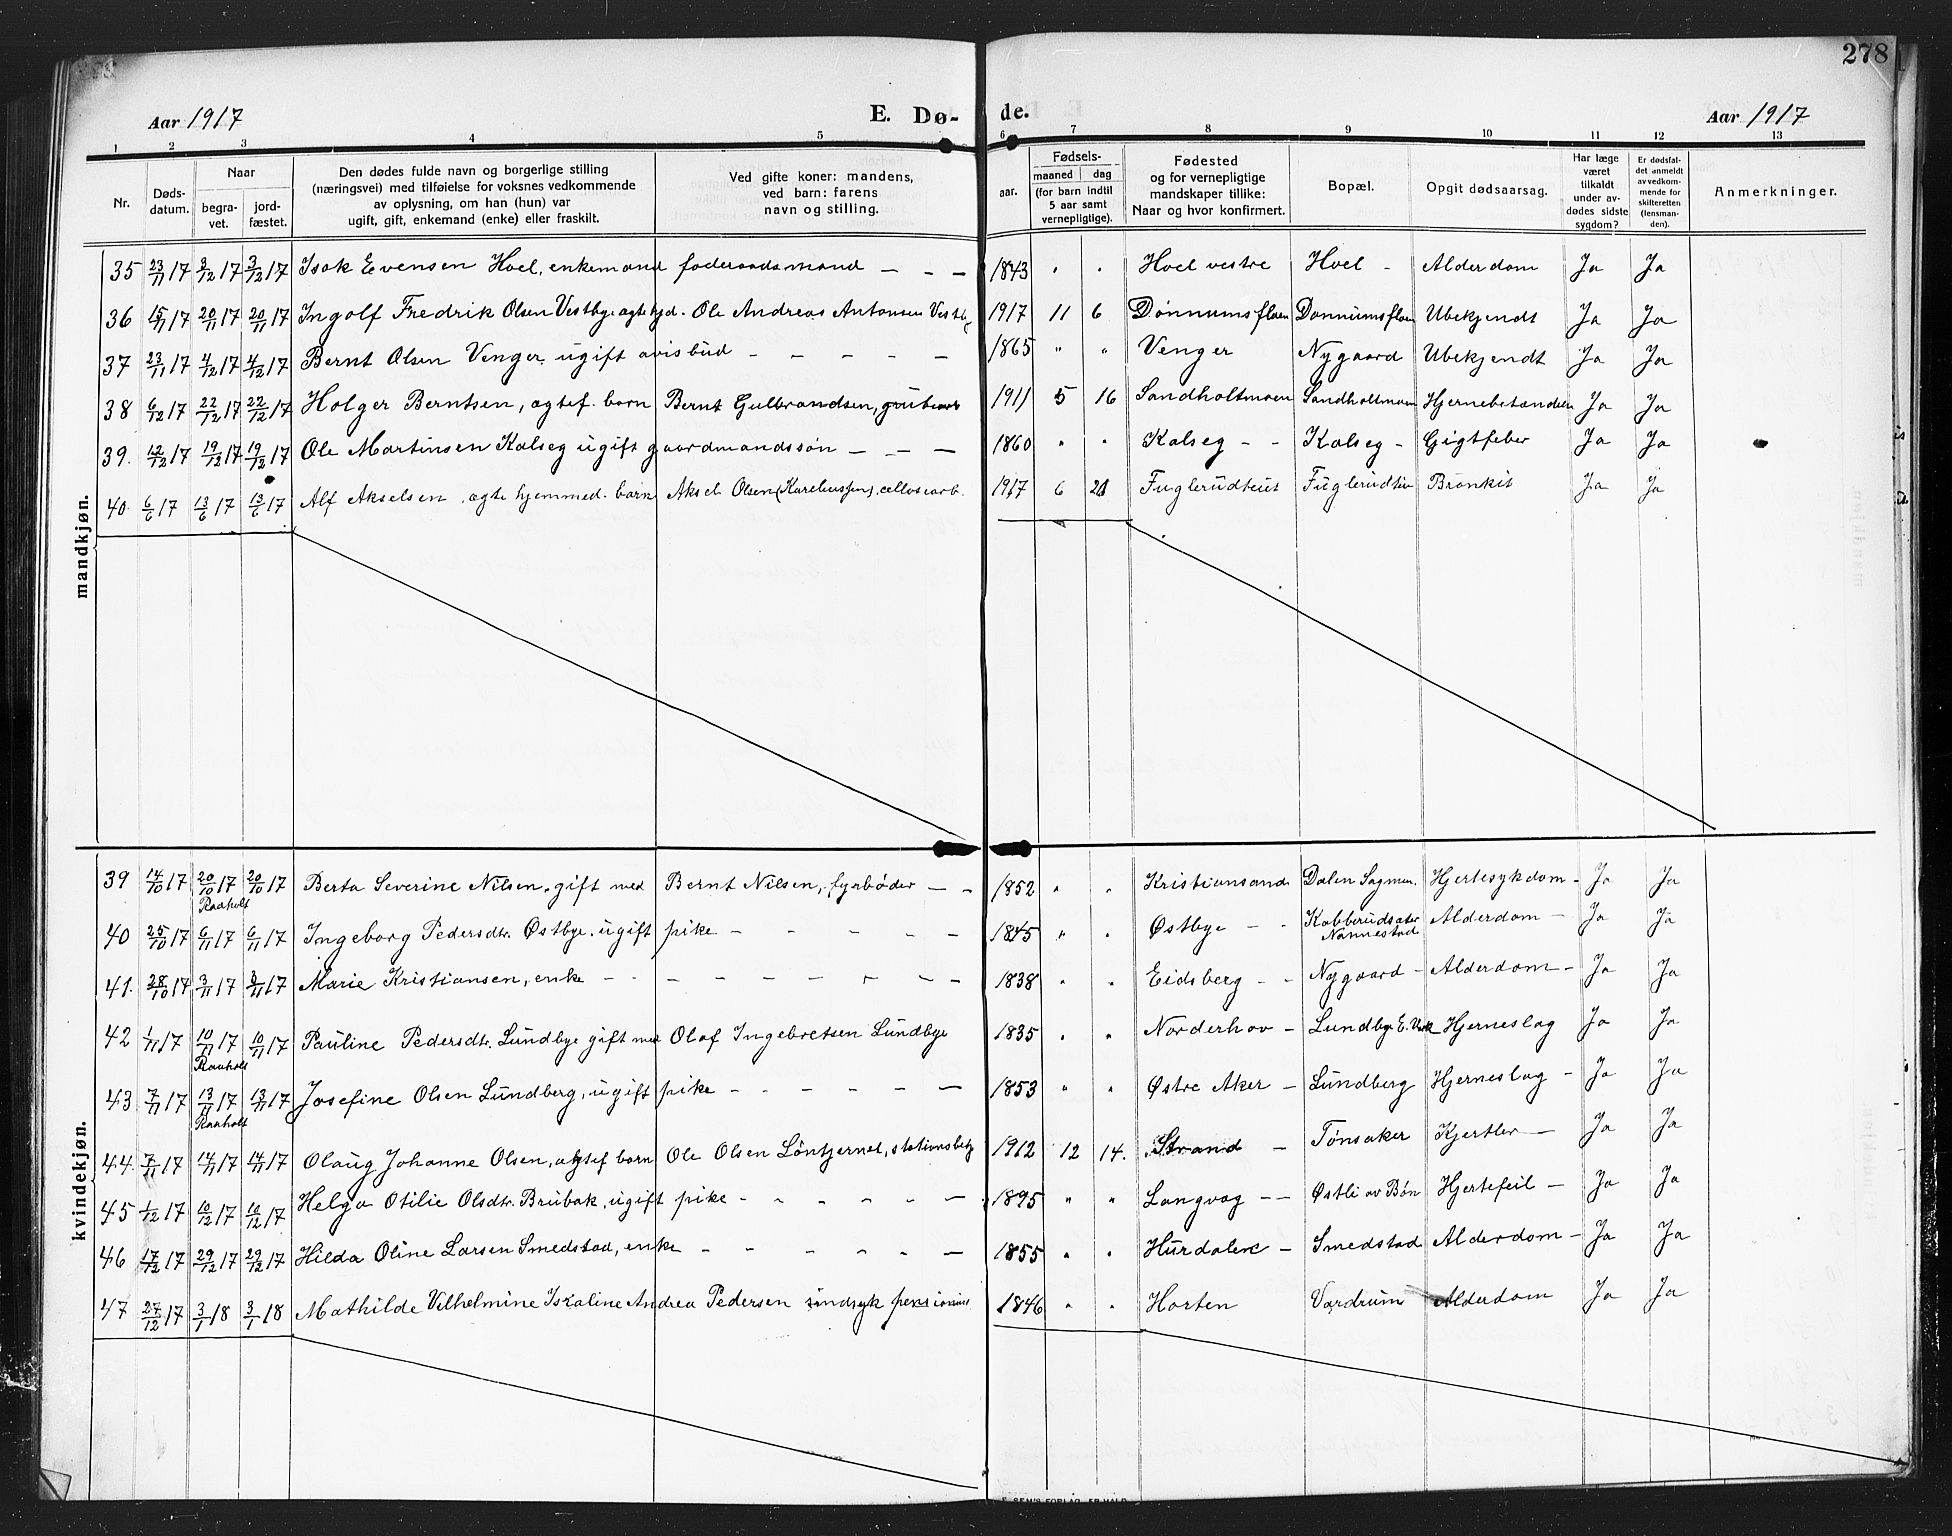 278
Aar 1917 E. Dø- de. Aar 1917
1 2 3 4 5 6 7 8 9 10 11 12 13
Nr. Døds-datum. Naar begra-vet. jord-fæstet. Den dødes fulde navn og borgerlige stilling (næringsvei) med tilføielse for voksnes vedkommende av oplysning, om han (hun) var ugift, gift, enkemand (enke) eller fraskilt. Ved gifte koner: mandens, ved barn: farens navn og stilling. Fødsels- aar. maaned dag (for barn indtil 5 aar samt vernepligtige). Fødested og for vernepligtige mandskaper tillike: Naar og hvor konfirmert. Bopæl. Opgit dødsaarsag. Har læge været tilkaldt under av-dødes sidste sygdom? Er dødsfal-det anmeldt av vedkom-mende for skifteretten (lensman-den). Anmerkninger.
mandkjøn.
35 23/11 17 3/12 17 3/12 17 Isak Evensen Hoel, enkemand föderaadsmand – – – 1843 " " Hoel vestre Hoel – Alderdom Ja Ja
36 15/11 17 20/11 17 20/11 17 Ingolf Fredrik Olsen Vestbye agte hjd. Ole Andreas Antonsen Vestb. 1917 11 6 Dønnumsfloen Donnumsfloen Ubekjendt Ja Ja
37 23/11 17 4/12 17 4/12 17 Bernt Olsen Venger, ugift avisbud – – – – – 1865 " " Venger Nygaard Ubekjendt Ja Ja
38 6/12 17 22/12 17 22/12 17 Holger Berntsen, agtef. barn Bernt Gulbrandsen, grubearb 1911 5 16 Sandholtmoen Sandholtmoen Hjernebetændelse Ja Ja
39. 12/12 17 19/12 17 19/12 17 Ole Martinsen Kalseg ugift gaardmandssøn – – – 1860 " " Kalseg – – Kalseg – Gigtfeber Ja Ja
40 6/6 17 13/6 17 13/6 17 Alf Akselsen, agte hjemmed. barn Aksel Olsen (Kareliussen), cellosearb. 1917 6 Fuglerudteiet Fuglerudtei Bronkit Ja Ja
kvindekjøn.
39 14/10 17 20/10 17 Raaholt 20/10 17 Berta Severine Nilsen, gift med Bernt Nilsen, fyrbøder – – 1852 " " Kristiansand Dalen Sagmen. Hjertesykdom – Ja Ja
40 25/10 17 6/11 17 6/11 17 Ingeborg Pedersdtr. Østbye, ugift pike – – – – – 1845 " " Østbye – – Kabberudsæter Nannestad Alderdom – Ja Ja
41. 28/10 17 3/11 17 3/11 17 Marie Kristiansen, enke – – – – – – – – – 1838 " " Eidsberg – – Nygaard – Alderdom – Ja Ja
42 1/11 17 10/11 17 Raaholt 10/11 17 Pauline Pedersdtr. Lundbye gift med Olaf Ingebretsen Lundbye 1835 " " Norderhov – Lundbye E. Verk Hjerneslag Ja Ja
43 7/11 17 13/11 17 Raaholt 13/11 17 Josefine Olsen Lundberg, ugift pike – – – – – 1853 " " Østre Aker – Lundberg Hjerneslag – Ja Ja
44. 7/11 17 14/11 17 14/11 17 Olaug Johanne Olsen, agtef barn Ole Olsen Löntjernet, stationsbetj 1912 12 14. Strand – Tønsaker Kjertler – Ja Ja
45 1/12 17 10/12 17 10/12 17 Helga Otilie Olsdtr. Brubak, ugift pike – – – – – – 1895 " " Langvag – – Østli av Bøn Hjertefeil – Ja Ja
46 17/12 17 29/12 17 29/12 17 Hilda Oline Larsen Smedstad, enke – – – – – – 1855 " " Hurdalen – Smedstad Alderdom – Ja Ja
47 27/12 17 3/1 18 3/1 18 Mathilde Vilhelmine Iskaline Andrea Pedersen sindsyk 1846 " " Horten Vardrum Alderdom Ja Ja